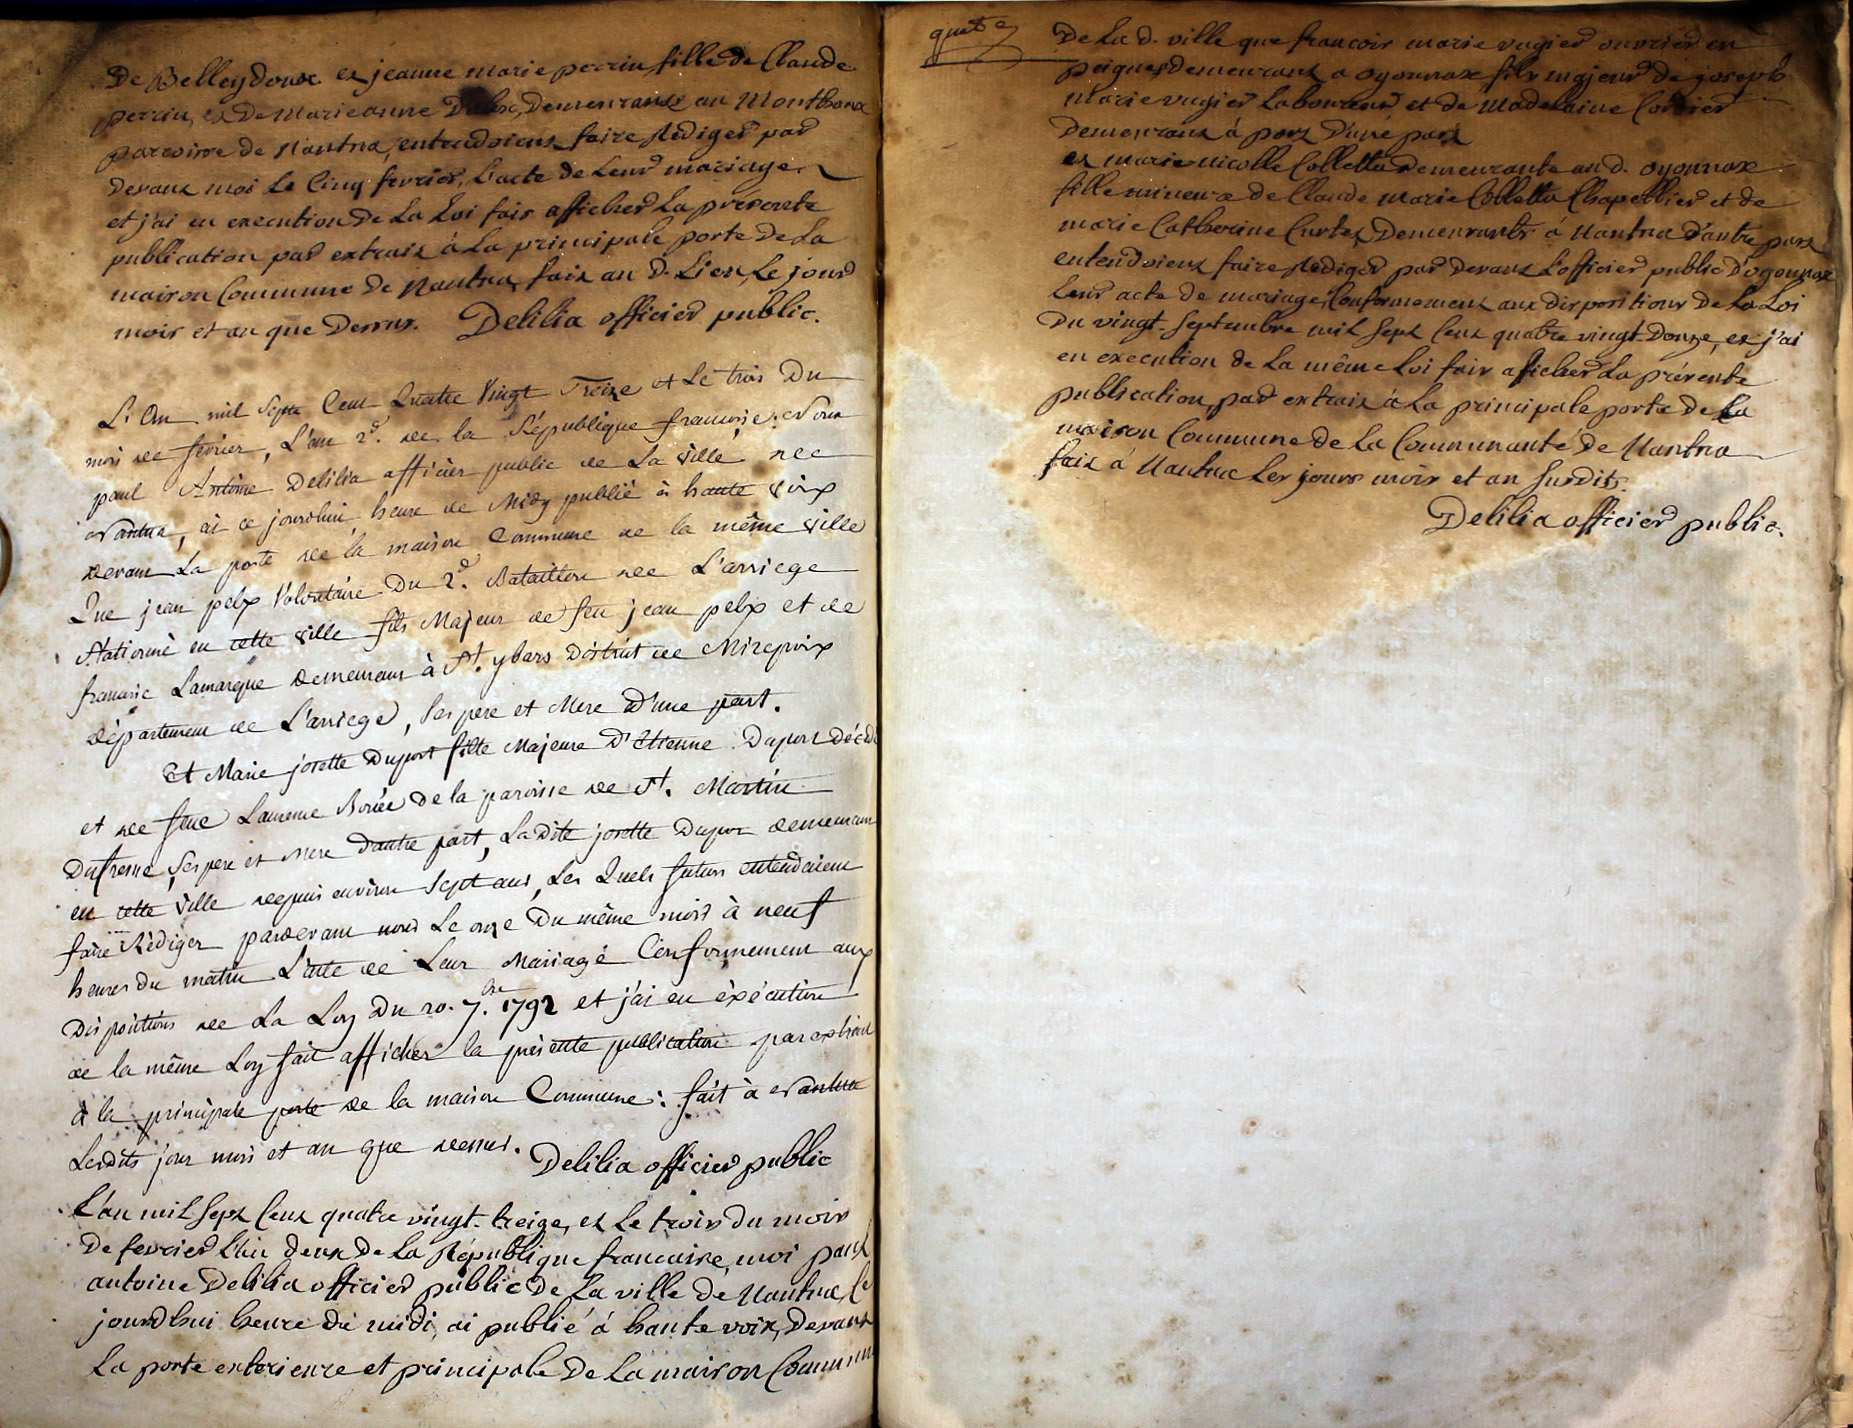 De Belleydoux et jeanne marie perrin fille de Claude
perrin, et De marieanne Demeurants au Monthoux
paroisse de Nantua, entendoient faire Rediger par
devant moi Le Cinq fevrier, L'acte de Leur mariage
et j'ai en execution de La Loi fait afficher La presente
publication par extrait à La principale porte De La
maison Commune de Nantua, fait au d. Lieu, Le jour
mois et an que Dessus. Delilia officier public.
L'An mil Sept Cent Quatre Vingt Treize et Le trois Du
mois de février, L'an 2d. de la République francoise. Nous
paul Antoine Delilia officier public de La Ville de
Nantua, ai ce jourdhui heure de Midy publié à haute Voix
devant La porte de la maison Commune de la même Ville
Que jean pelx Volontaire Du 2d. Bataillon de L'arriege
Stationné en cette Ville fils Majeur de feu jean pelx et de
francoise Lamarque demeurant à St. ybars District de Mirepoix
département de L'arriege, Ses pere et Mere D'une part.
Et Marie josette Duport fille Majeure D'Etienne Duport décédé
et de feue Laurence Borée de la paroisse de St. Martin
Dufresne, Ses pere et Mere d'autre part, La Dite josette Duport demeurant
en cette Ville depuis environ Sept ans, Les Quels futurs entendoient
faire Rédiger pardevant nous Le onze Du même mois à neuf
heures du matin L'acte de Leur Mariage Conformement aux
Dispositions de La Loy Du 20. 7bre. 1792 et j'ai en éxécution
de la même Loy fait afficher la présente publication par extrait
à la principale porte de la maison Commune: fait à Nantua
Lesdits jour mois et an que dessus. Delilia officier public
L'an mil Sept Cent quatre vingt-treize, et Le trois du mois
De fevrier L'an deux De La République francaise, moi paul
antoine Delilia officier public De La ville de Nantua, Ce
jourdhui heure de midi, ai publié à haute voix, Devant
La porte exterieure et principale De La maison Commune
De La d. ville que francois marie vugier ouvrier en
peignes demeurant a oyonnax fils majeur de joseph
marie vugier Laboureur et de Madelaine Cordier
Demeurant à port D'une part
et marie nicolle Colletta Demeurante au d. oyonnax
fille mineure de Claude marie Colletta Chapellier et de
marie Catherine Curtet, Demeurants à Nantua D'autre part
entendoient faire Rediger par Devant L'officier public D'oyonnax
Leur acte de mariage, Conformement aux Dispositions De La Loi
Du vingt-Septembre mil Sept Cent quatre vingt-Douze, et j'ai
en execution de La même Loi fait afficher La présente
publication, par extrait à La principale porte de La
maison Commune de La Communauté de Nantua
fait à Nantua Les jours mois et an Susdits.
Delilia officier public.